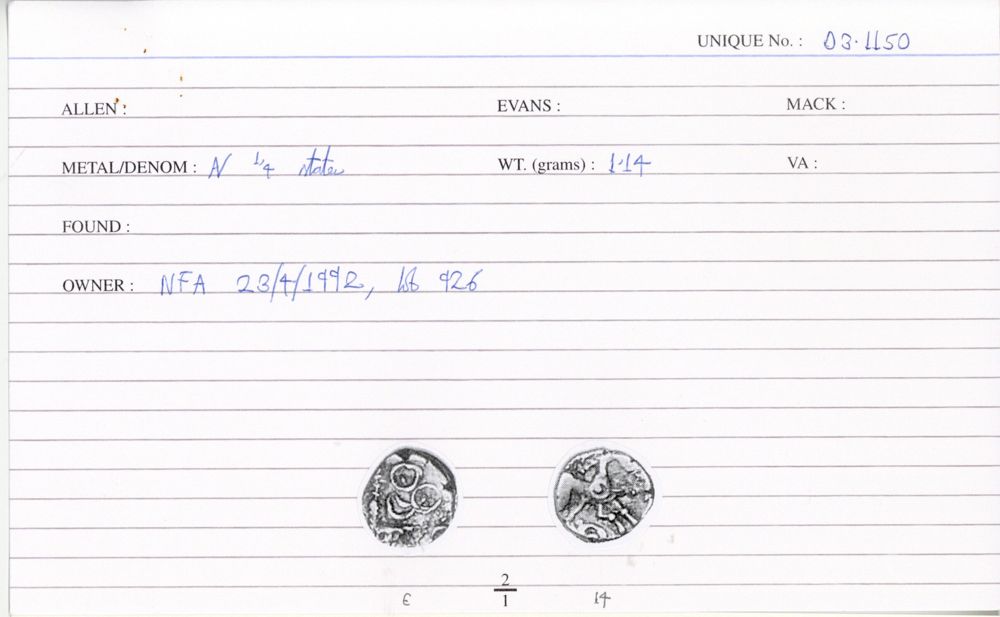 UNIQUE No. : 03.1150
ALLEN : EVANS : MACK :
METAL/DENOM : N 1/4 stater WT. (grams) : 1.14 VA :
FOUND :
OWNER : NFA 23/4/1992, lot 926
2
E 1 14